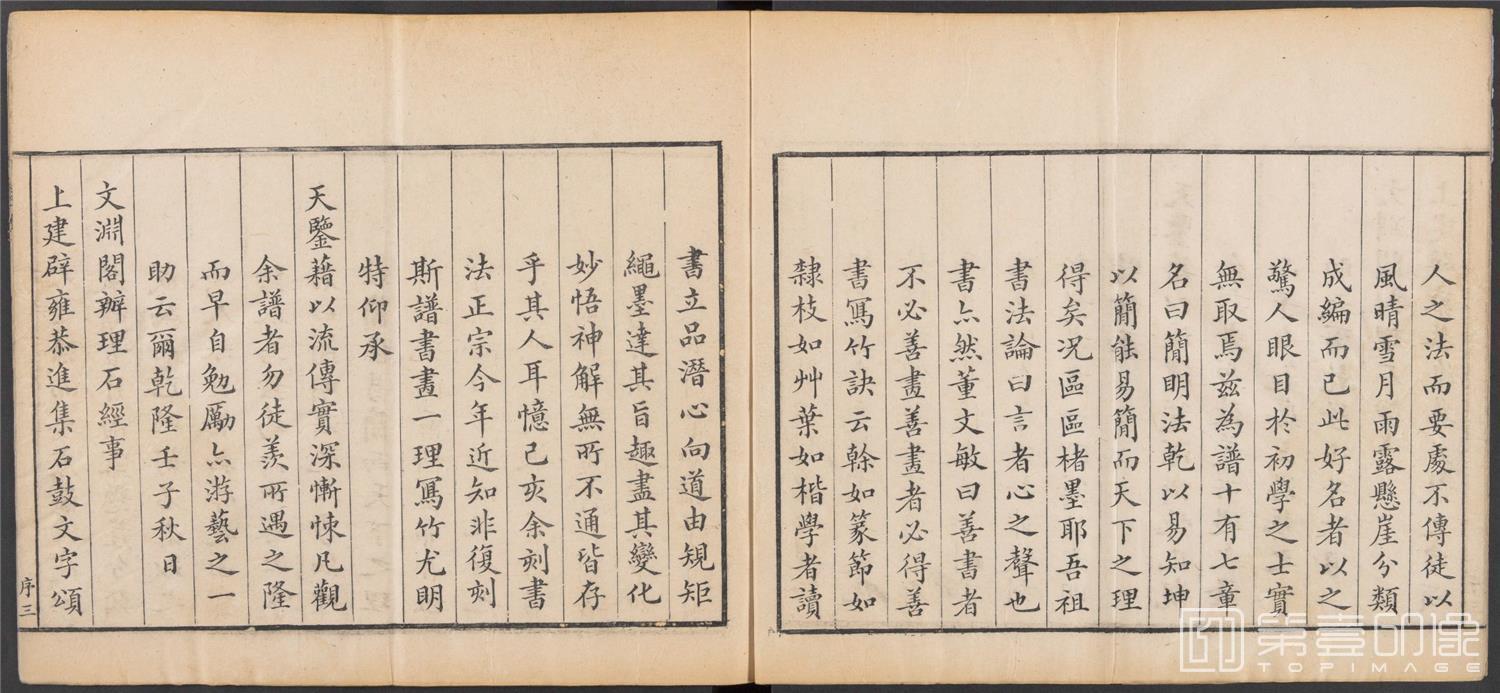 人之法而要處不傳徒以
風晴雪月雨露懸崖分類
成編而已此好名者以之
驚人眼目於初學之士實
無取焉茲為譜十有七章
名曰簡明法乾以易知坤
以簡能易簡而天下之理
得矣况區區楮墨耶吾祖
書法論曰言者心之聲也
書亦然董文敏曰善書者
不必善畫善畫者必得善
書寫竹訣云榦如篆節如
隸枝如艸葉如楷學者讀
書立品潛心向道由規矩
繩墨達其旨趣盡其變化
妙悟神解無所不通皆存
乎其人耳憶己亥余刻書
法正宗今年近知非復刻
斯譜書畫一理寫竹尤明
特仰承
天鑒藉以流傳實深慚悚凡觀
余譜者勿徒羨所遇之隆
而早自勉勵亦游藝之一
助云爾乾隆壬子秋日
文淵閣辦理石經事
上建辟雍恭進集石鼓文字頌
序三
第壹印像
TOPIMAGE